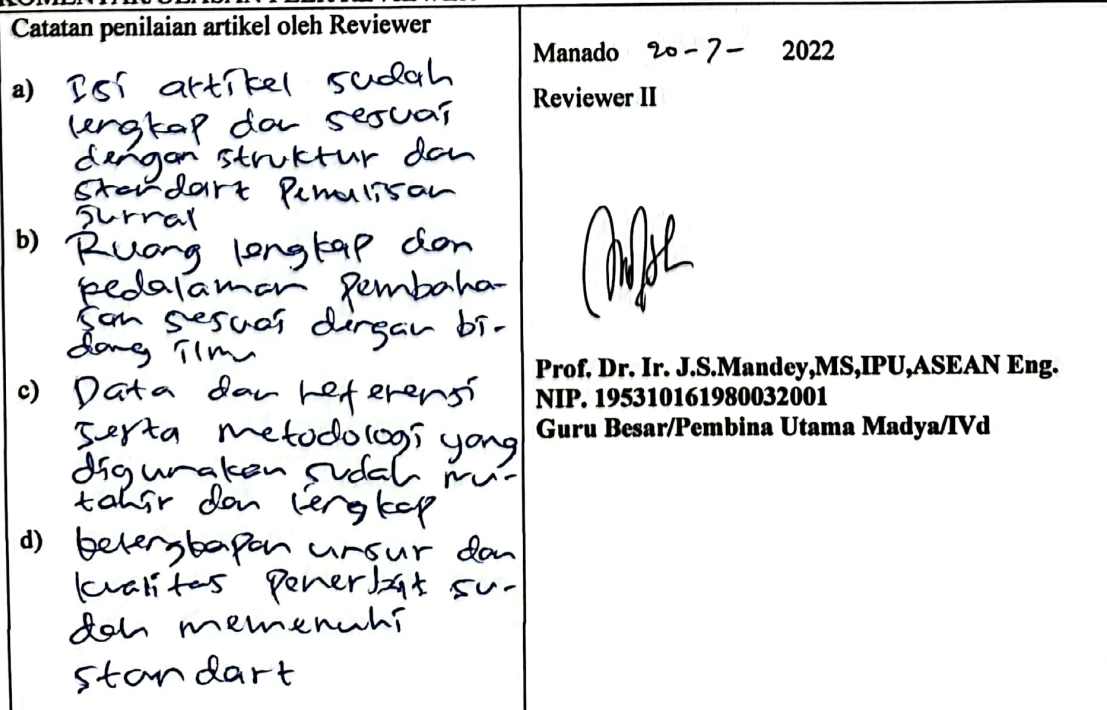 KOMENTAR/ULASAN PEER REVIEWER
Catatan penilaian artikel oleh Reviewer
a) Isi artikel sudah
lengkap dan sesuai
dengan struktur dan
standart Penulisan
Jurnal
b) Ruang lengkap dan
pedalaman pembaha-
san sesuai dengan bi-
dang ilmu
c) Data dan referensi
serta metodologi yang
digunakan sudah mu-
tahir dan lengkap
d) kelengkapan unsur dan
kualitas Penerbit su-
dah memenuhi
standart
Manado 20-7- 2022
Reviewer II
Prof. Dr. Ir. J.S.Mandey,MS,IPU,ASEAN Eng.
NIP. 195310161980032001
Guru Besar/Pembina Utama Madya/IVd